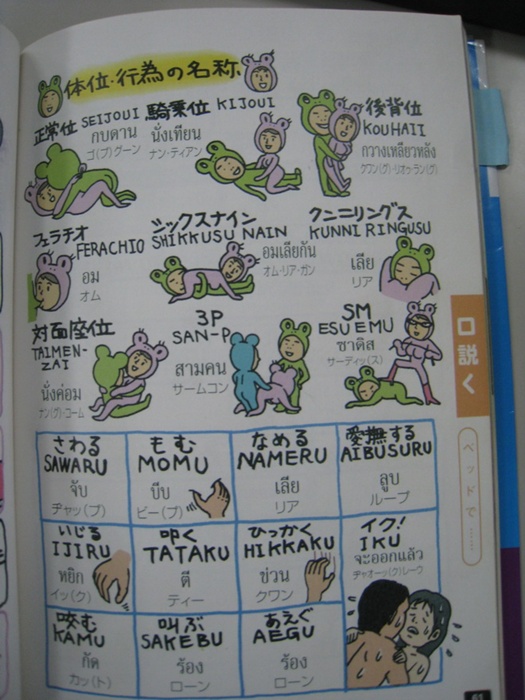 体位・行為の名称
正常位 SEIJOUI
กบดาน
ゴ(プ)グーン
騎乗位 KIJOUI
นั่งเทียน
ナン・ティアン
後背位
KOUHAII
กวางเหลียวหลัง
クワン(グ)・リオゥ・ラン(グ)
フェラチオ
FERACHIO
อม
オム
シックスナイン
SHIKKUSU NAIN
อมเลียกัน
オム・リア・ガン
クンニリングス
KUNNI RINGUSU
เลีย
リア
対面座位
TAIMEN-
ZAI
นั่งค่อม
ナン(グ)・コーム
3P
SAN-P
สามคน
サームコン
SM
ESU EMU
ซาดิส
サーディッ(ス)
口説く
ベッドで……
さわる
SAWARU
จับ
ヂャッ(プ)
もむ
MOMU
บีบ
ビー(プ)
なめる
NAMERU
เลีย
リア
愛撫する
AIBUSURU
ลูบ
ループ
いじる
IJIRU
หยิก
イッ(ク)
叩く
TATAKU
ตี
ティー
ひっかく
HIKKAKU
ข่วน
クワン
イク!
IKU
จะออกแล้ว
ヂャオーッ(ク)レーウ
咬む
KAMU
กัด
カッ(ト)
叫ぶ
SAKEBU
ร้อง
ローン
あえぐ
AEGU
ร้อง
ローン
61